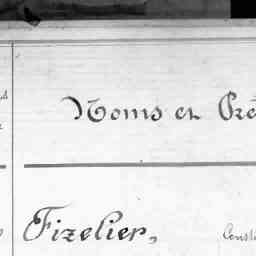 Noms et Pré
Fizelier,